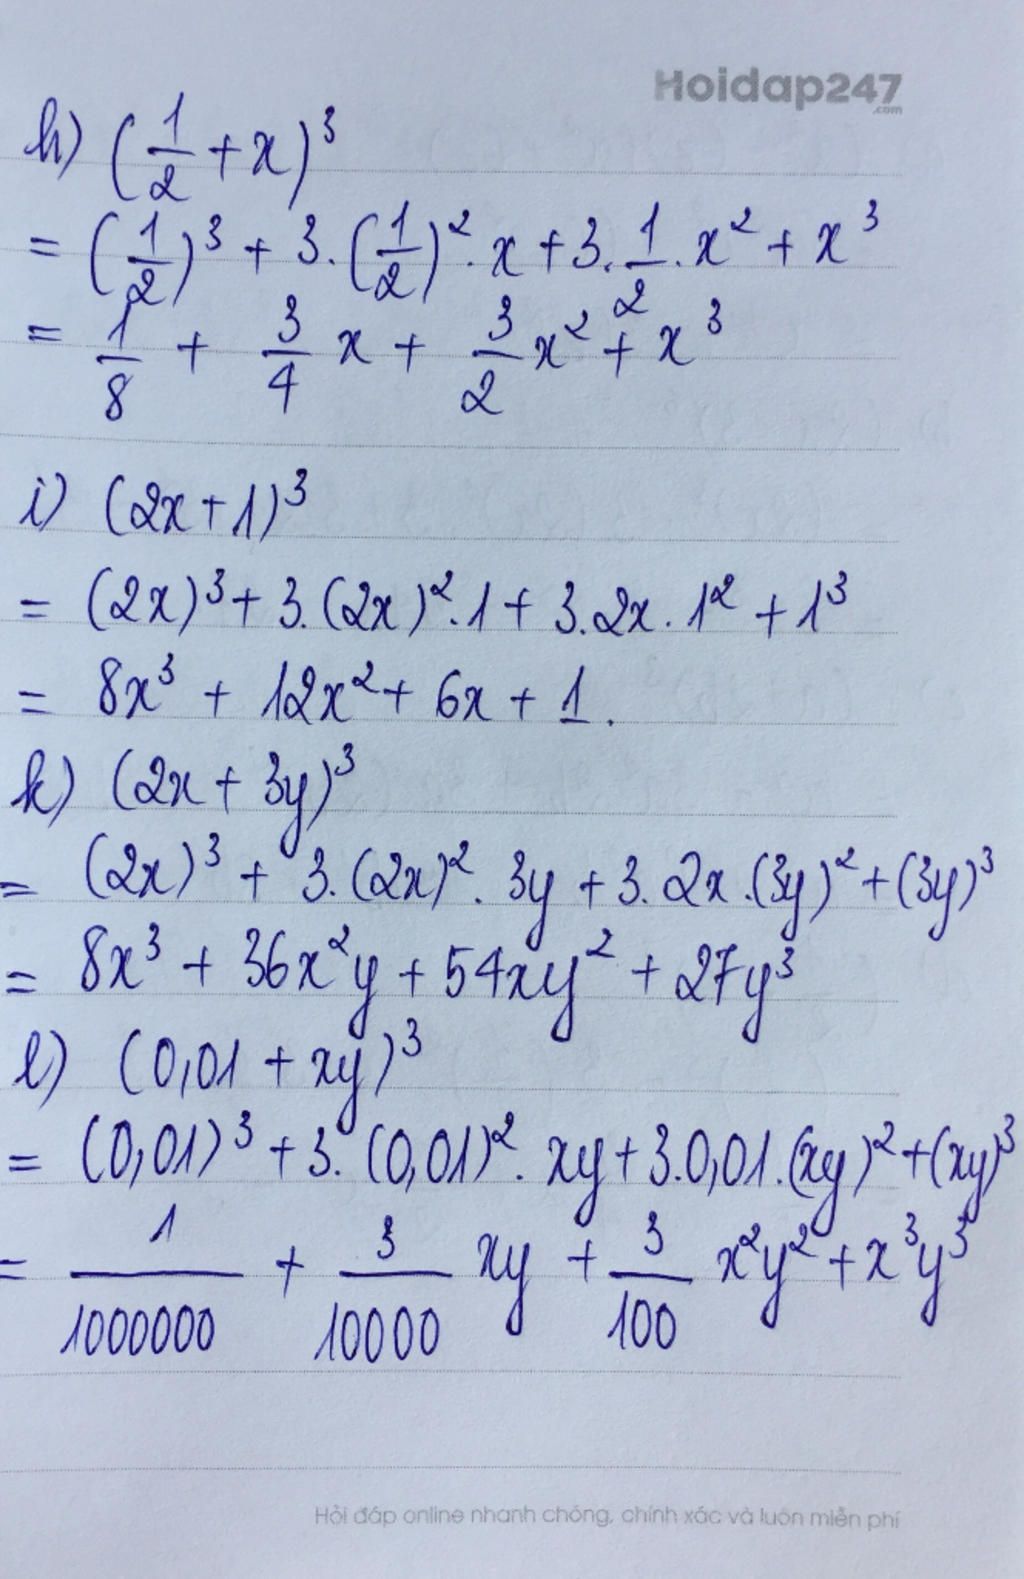 Hoidap247
.com
h) (1/2 + x)³
= (1/2)³ + 3.(1/2)².x + 3.1/2.x² + x³
= 1/8 + 3/4 x + 3/2 x² + x³
i) (2x+1)³
= (2x)³ + 3.(2x)².1 + 3.2x.1² + 1³
= 8x³ + 12x² + 6x + 1.
k) (2x + 3y)³
= (2x)³ + 3.(2x)².3y + 3.2x.(3y)² + (3y)³
= 8x³ + 36x²y + 54xy² + 27y³
l) (0,01 + xy)³
= (0,01)³ + 3.(0,01)².xy + 3.0,01.(xy)² + (xy)³
= 1/1000000 + 3/10000 xy + 3/100 x²y² + x³y³
Hỏi đáp online nhanh chóng, chính xác và luôn miễn phí